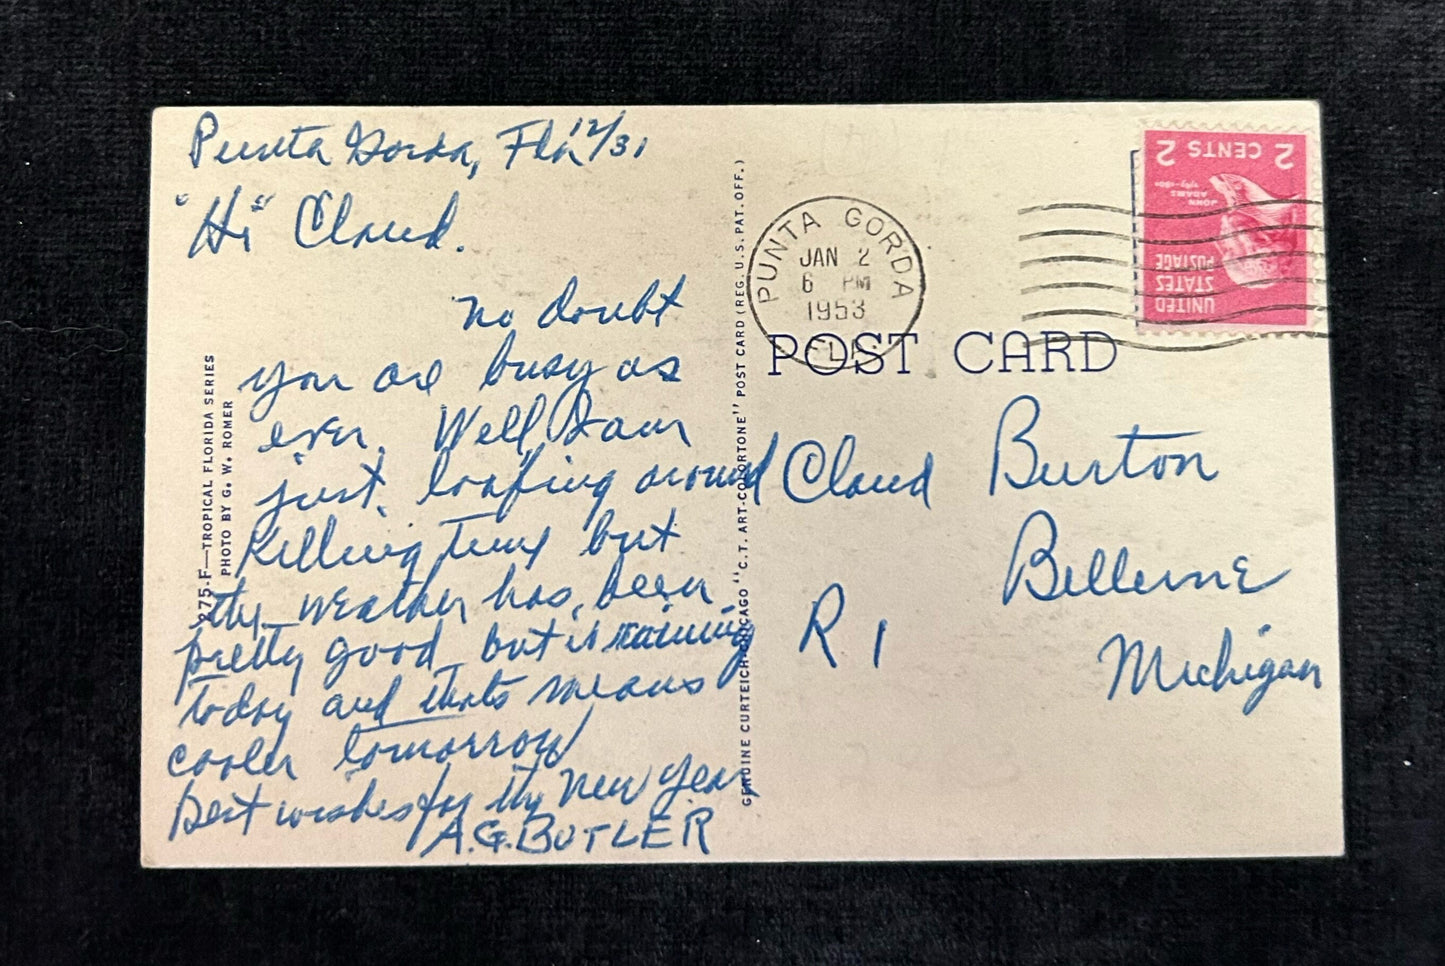 Punta Gorda, Fla 12/31
"Hi" Claud.
no doubt
you are busy as
ever. Well I am
just loafing around
killing time but
the weather has been
pretty good but is raining
today and thats means
cooler tomorrow
Best wishes for the New Year
A.G. BUTLER
275-F—TROPICAL FLORIDA SERIES
PHOTO BY G. W. ROMER
GENUINE CURTEICH-CHICAGO "C.T. ART-COLORTONE" POST CARD (REG. U.S. PAT. OFF.)
PUNTA GORDA
JAN 2
6 PM
1953
FLA.
2 CENTS 2
JOHN
ADAMS
1797-1801
UNITED
STATES
POSTAGE
POST CARD
Claud Burton
Bellevue
R 1
Michigan